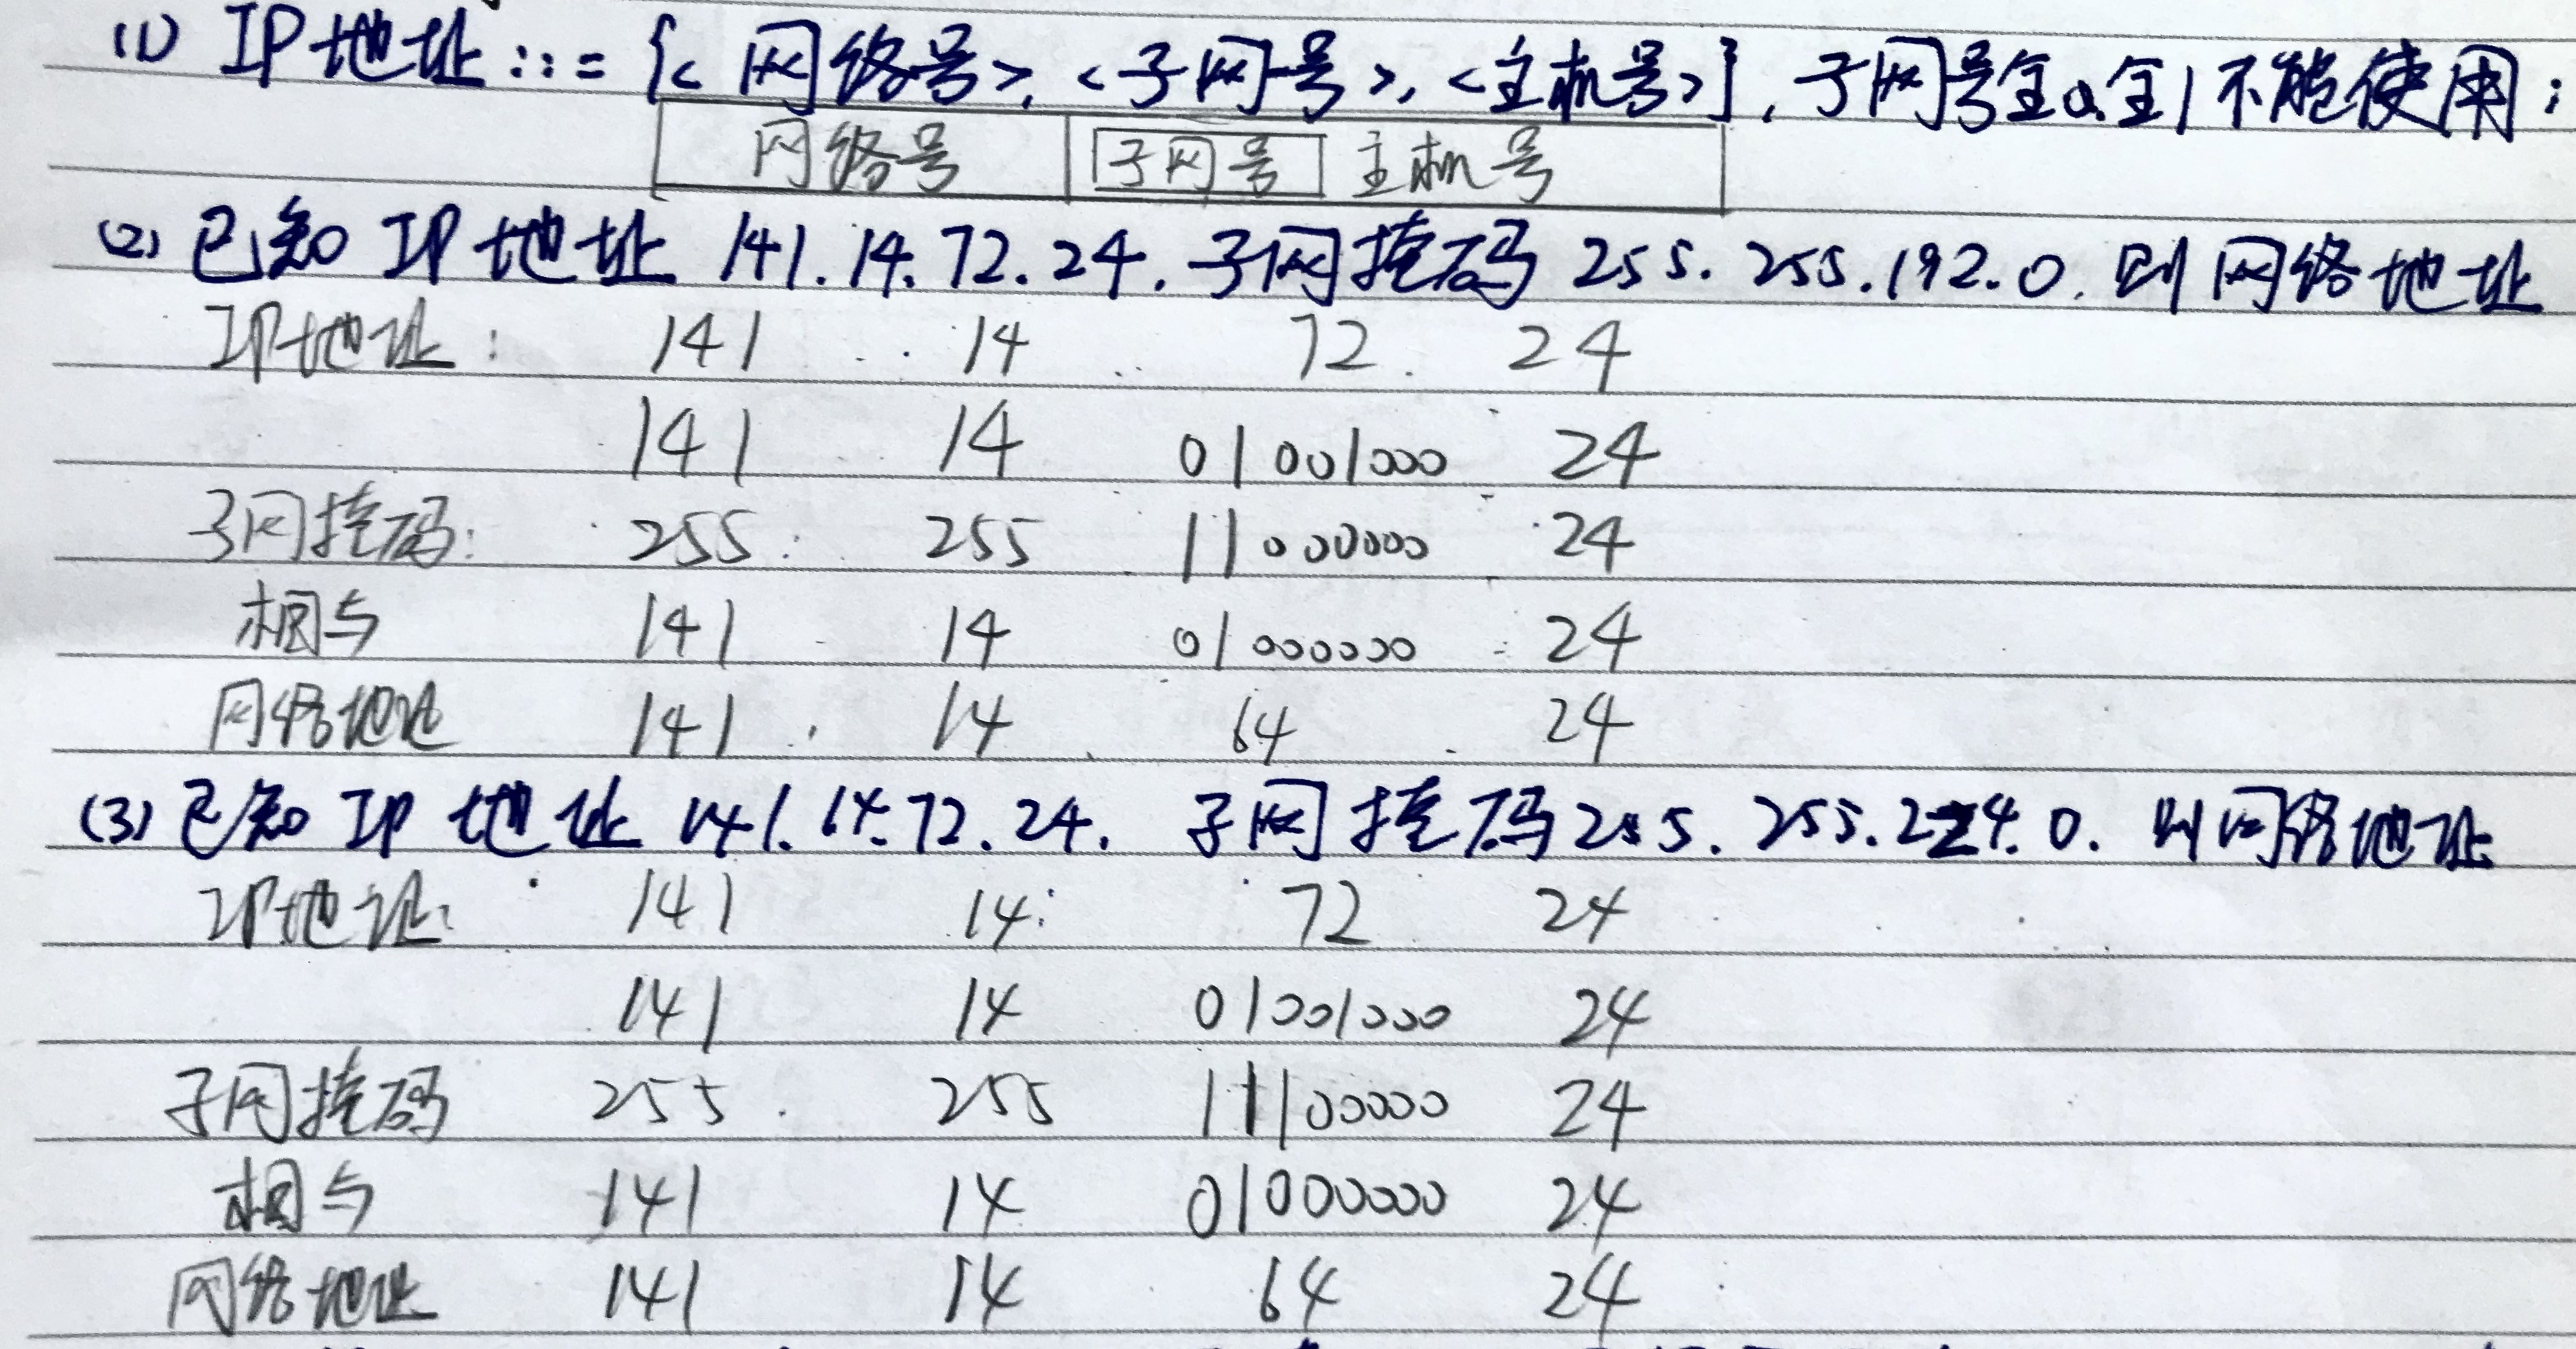 (1) IP地址::={<网络号>,<子网号>,<主机号>}, 子网号全0.全1不能使用;
网络号 子网号 主机号
(2) 已知IP地址 141.14.72.24. 子网掩码 255.255.192.0. 则网络地址
IP地址: 141 . 14 . 72 . 24
141 14 01001000 24
子网掩码: 255 . 255 11000000 24
相与 141 14 01000000 24
网络地址 141 . 14 . 64 . 24
(3) 已知IP地址 141.14.72.24. 子网掩码 255.255.224.0. 则网络地址
IP地址: 141 14 72 24
141 14 01001000 24
子网掩码 255 . 255 11100000 24
相与 141 14 01000000 24
网络地址 141 14 64 24